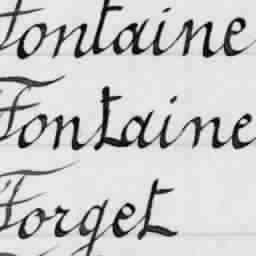 Fontaine
Fontaine
Forget